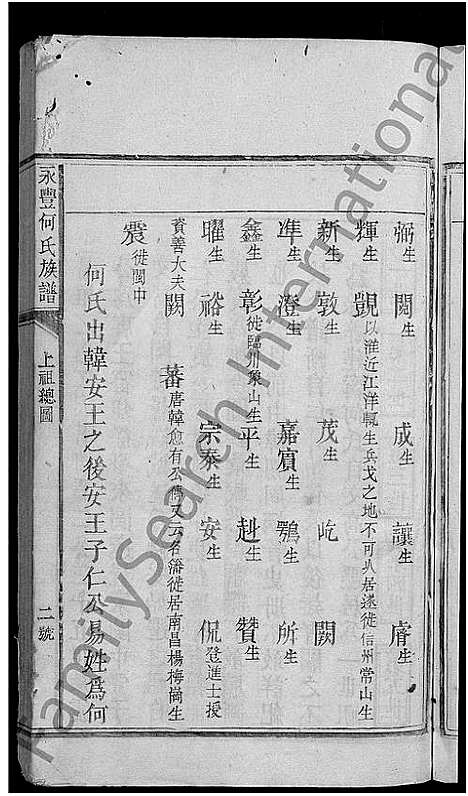 弼生 閱生 成生 讓生 膺生
輝生 覬以淮近江洋輒生兵戈之地不可久居遂徙信州常山生
新生 敦生 茂生 屹 闕
準生 澄生 嘉賔生 鶚生 所生
鑫生 彰徙臨川象山生 平生 赳生 贊生
曜生 裕生 宗泰生 安生 侃登進士授
資善大夫 闕 蕃唐韓愈有公傳又云名潘徙居南昌楊梅崗生
震徙閩中
何氏出韓安王之後安王子仁公易姓爲何
永豐何氏族譜 上祖總圖 二號
FamilySearch International